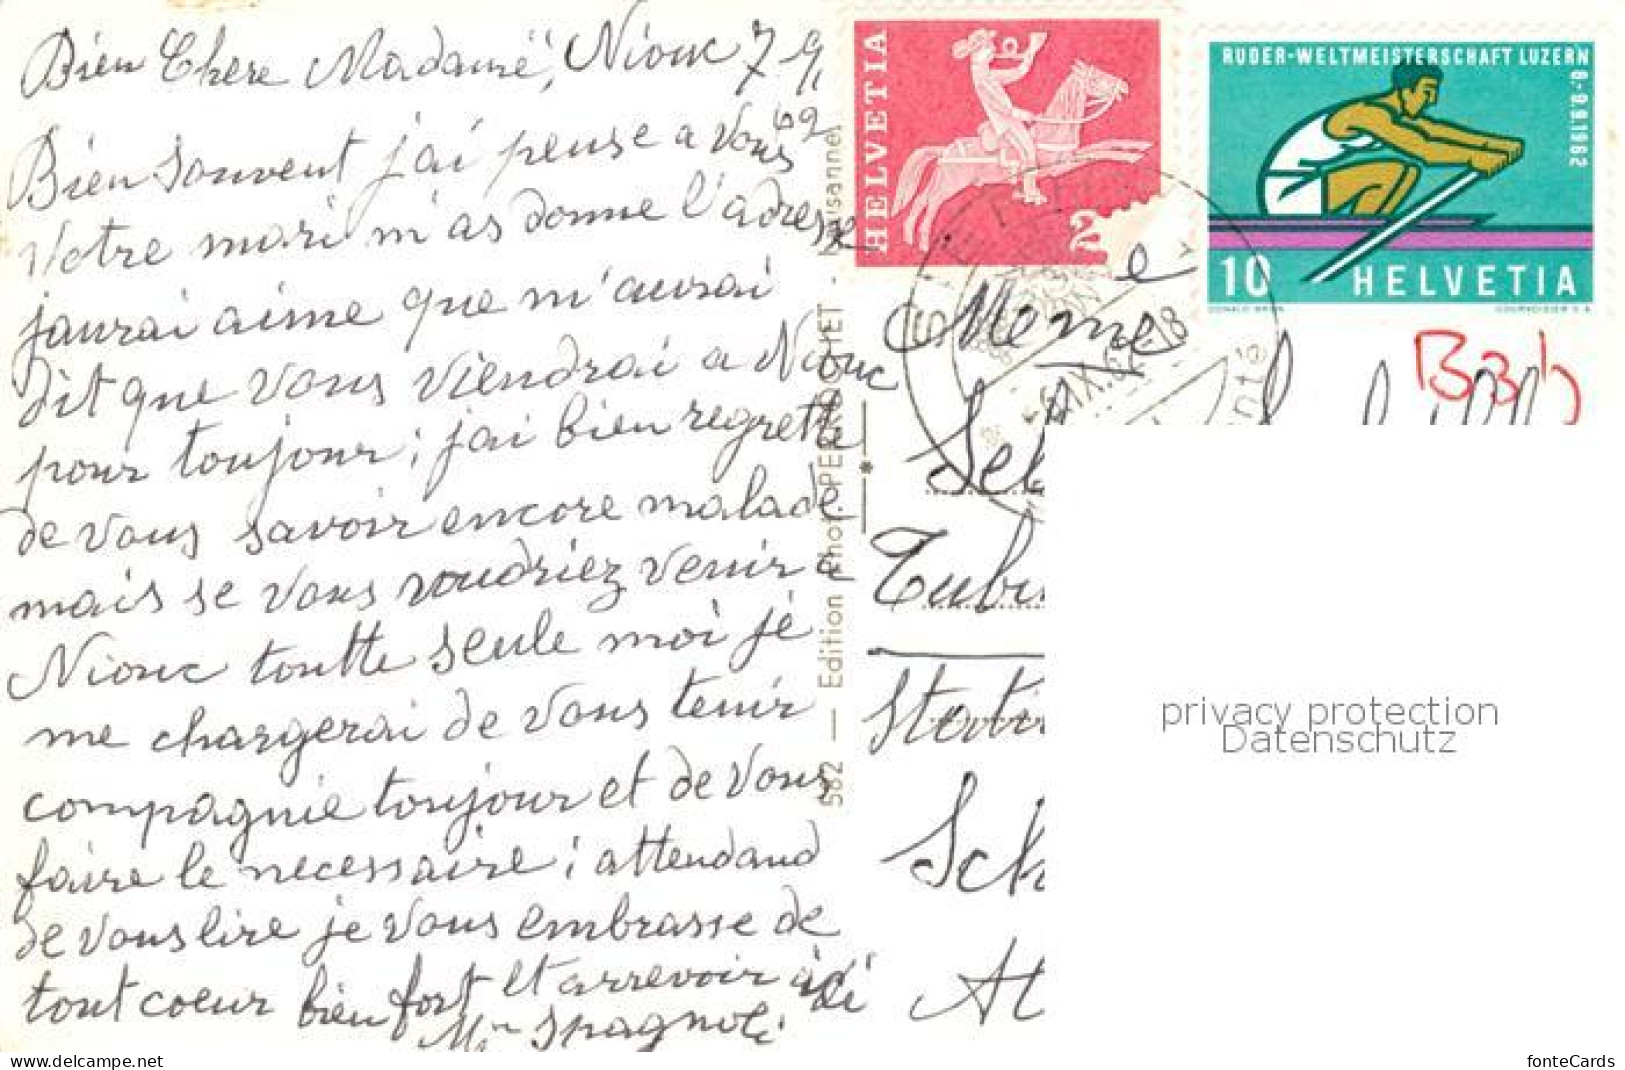 Bien Chere Madame, Niouc 7 9,
62
Bien Souvent j'ai pense a Vous
Votre mari m'as donne l'adresse
jaurai aime que m'aurai
dit que Vous Viendrai a Niouc
pour toujour; j'ai bien regrette
de Vous savoir encore malade
mais se Vous voudriez venir a
Niouc toutte seule moi je
me chargerai de Vous tenir
compagnie toujour et de Vous
faire le necessaire; attendand
de Vous lire je Vous embrasse de
tout coeur bien fort et arrevoir
Spagnoli
582 — Edition Phot. PERROCHET
HELVETIA
2
RUDER-WELTMEISTERSCHAFT LUZERN
6.-9.9.1962
10 HELVETIA
DONALD BRUN COURVOISIER S.A.
Mome
privacy protection
Datenschutz
www.delcampe.net
fonteCards